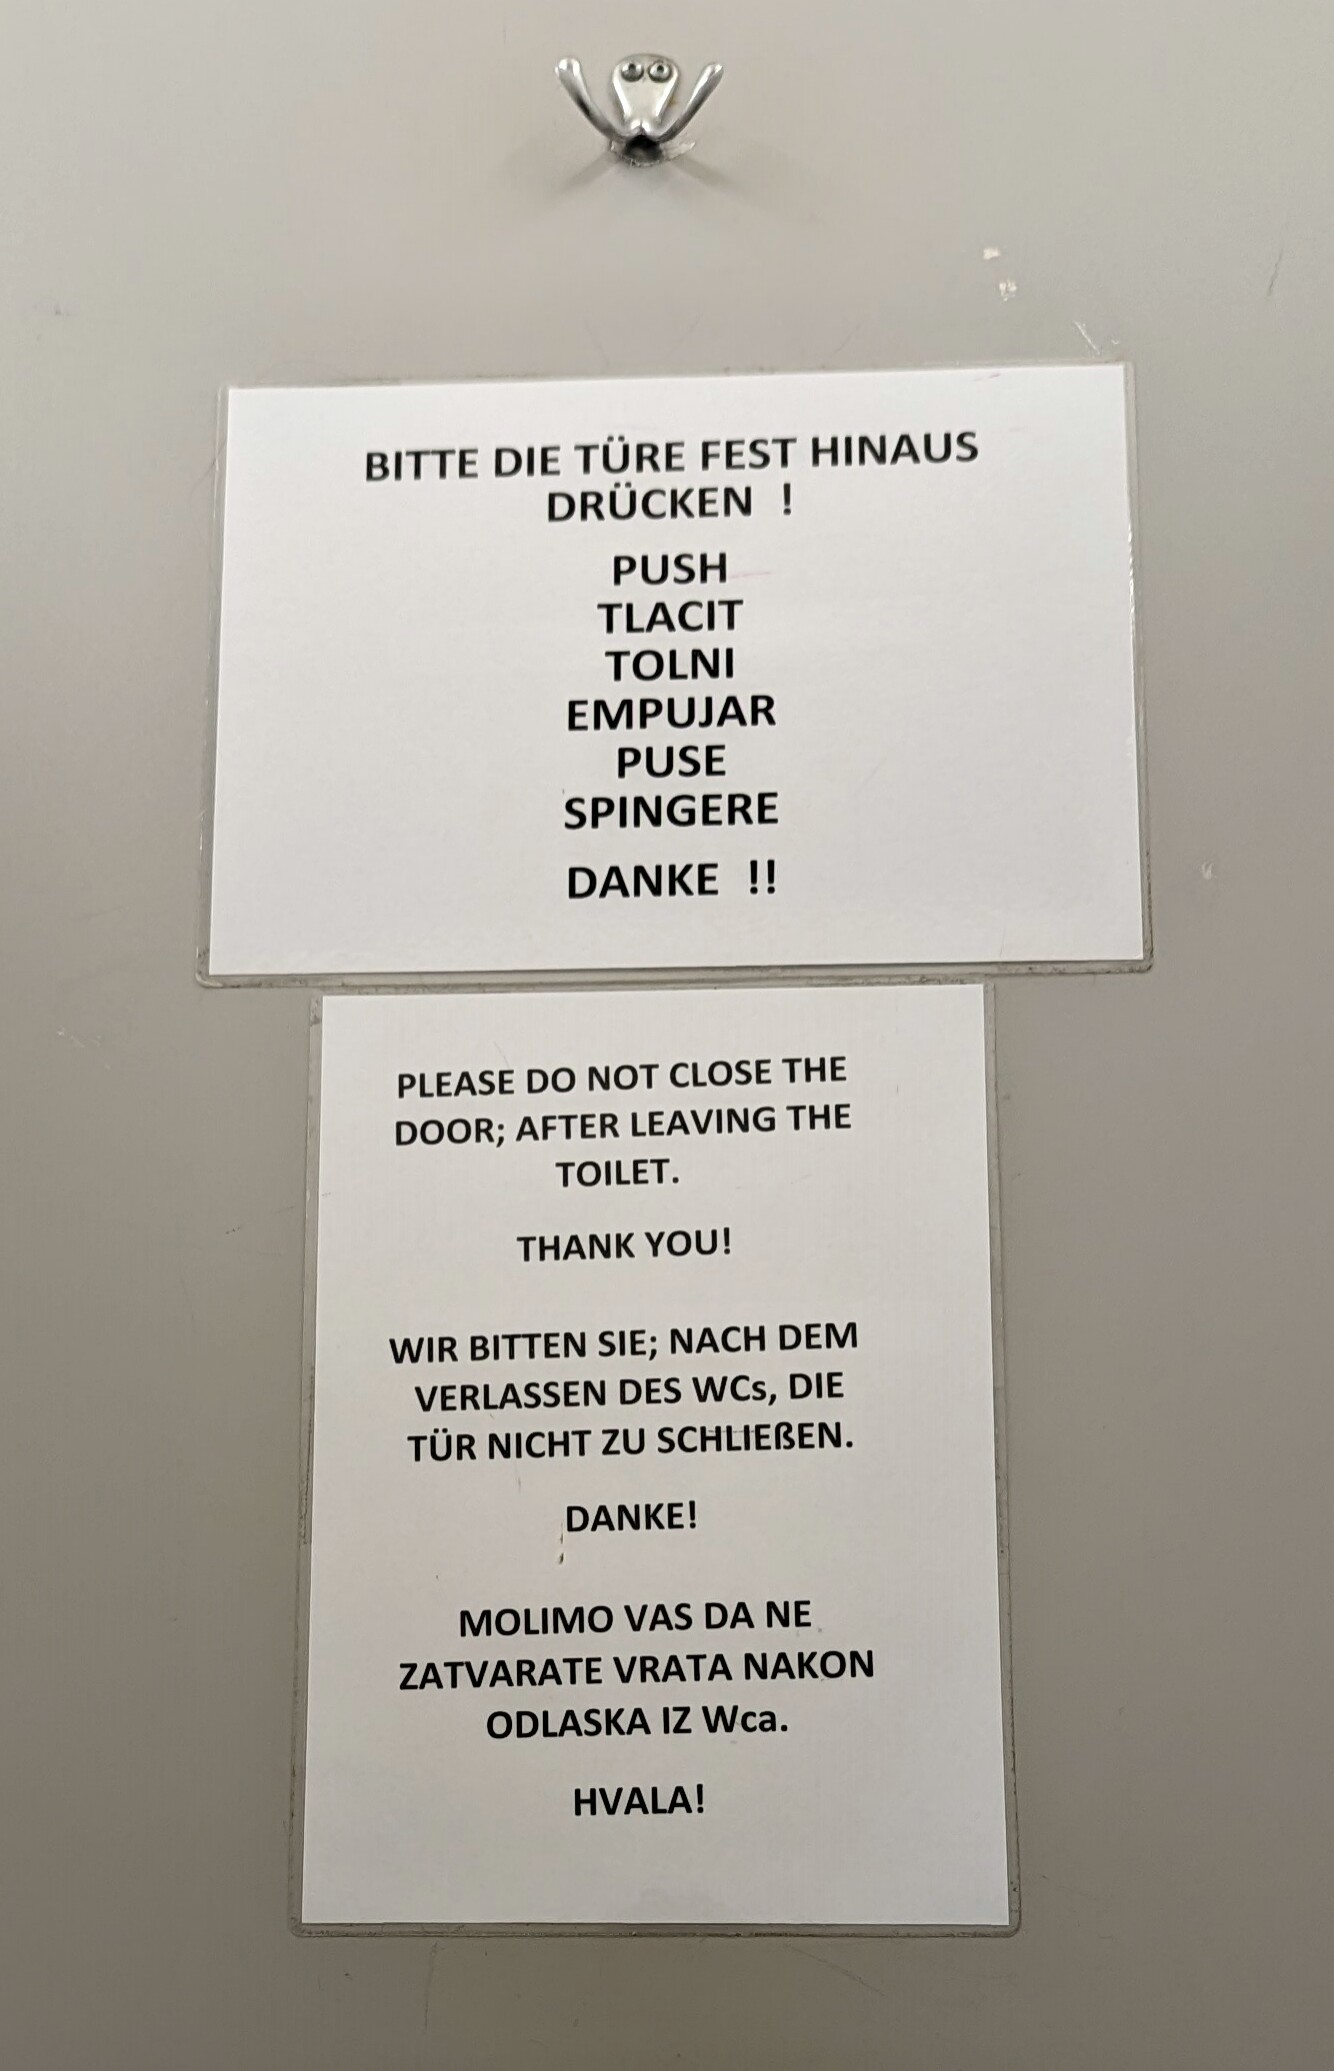 BITTE DIE TÜRE FEST HINAUS
DRÜCKEN !
PUSH
TLACIT
TOLNI
EMPUJAR
PUSE
SPINGERE
DANKE !!
PLEASE DO NOT CLOSE THE
DOOR; AFTER LEAVING THE
TOILET.
THANK YOU!
WIR BITTEN SIE; NACH DEM
VERLASSEN DES WCs, DIE
TÜR NICHT ZU SCHLIEßEN.
DANKE!
MOLIMO VAS DA NE
ZATVARATE VRATA NAKON
ODLASKA IZ Wca.
HVALA!